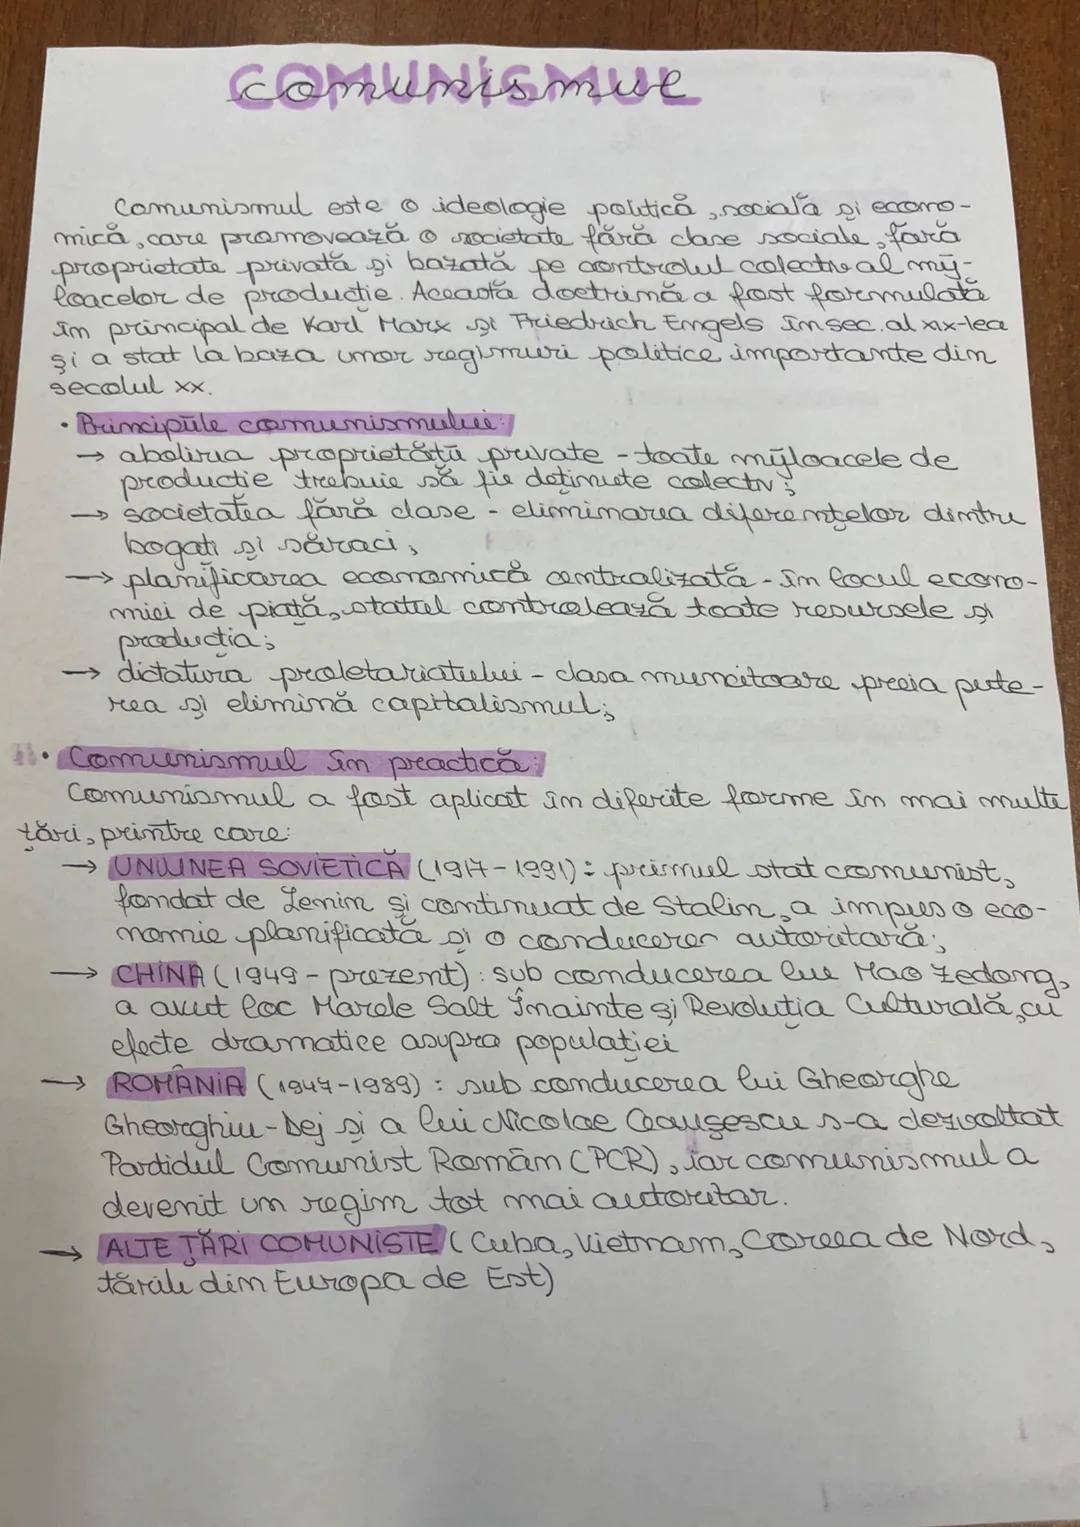 COMUNISMUL
comunismul
Comunismul este o ideologie politică, socială și econo-
mică, care promovează o societate fără clase sociale, fără
proprietate privată și bazată pe controlul colectiv al mij-
loacelor de producție. Această doctrină a fost formulată
în principal de Karl Marx și Friedrich Engels în sec. al XIX-lea
și a stat la baza unor regimuri politice importante din
secolul XX.
• Principiile comunismului:
→ abolirea proprietății private - toate mijloacele de
producție trebuie să fie deținute colectiv;
→ societatea fără clase - eliminarea diferențelor dintre
bogați și săraci;
→ planificarea economică centralizată - în locul econo-
miei de piață, statul controlează toate resursele și
producția;
→ dictatura proletariatului - clasa muncitoare preia pute-
rea și elimină capitalismul;
• Comunismul în practică:
Comunismul a fost aplicat în diferite forme în mai multe
țări, printre care:
→ UNIUNEA SOVIETICĂ (1917-1991): primul stat comunist,
fondat de Lenin și continuat de Stalin, a impus o eco-
nomie planificată și o conducere autoritară;
→ CHINA (1949 - prezent): sub conducerea lui Mao Zedong,
a avut loc Marele Salt Înainte și Revoluția Culturală, cu
efecte dramatice asupra populației
→ ROMÂNIA (1947-1989): sub conducerea lui Gheorghe
Gheorghiu-Dej și a lui Nicolae Ceaușescu s-a dezvoltat
Partidul Comunist Român (PCR), iar comunismul a
devenit un regim tot mai autoritar.
→ ALTE ȚĂRI COMUNISTE (Cuba, Vietnam, Coreea de Nord,
țările din Europa de Est)